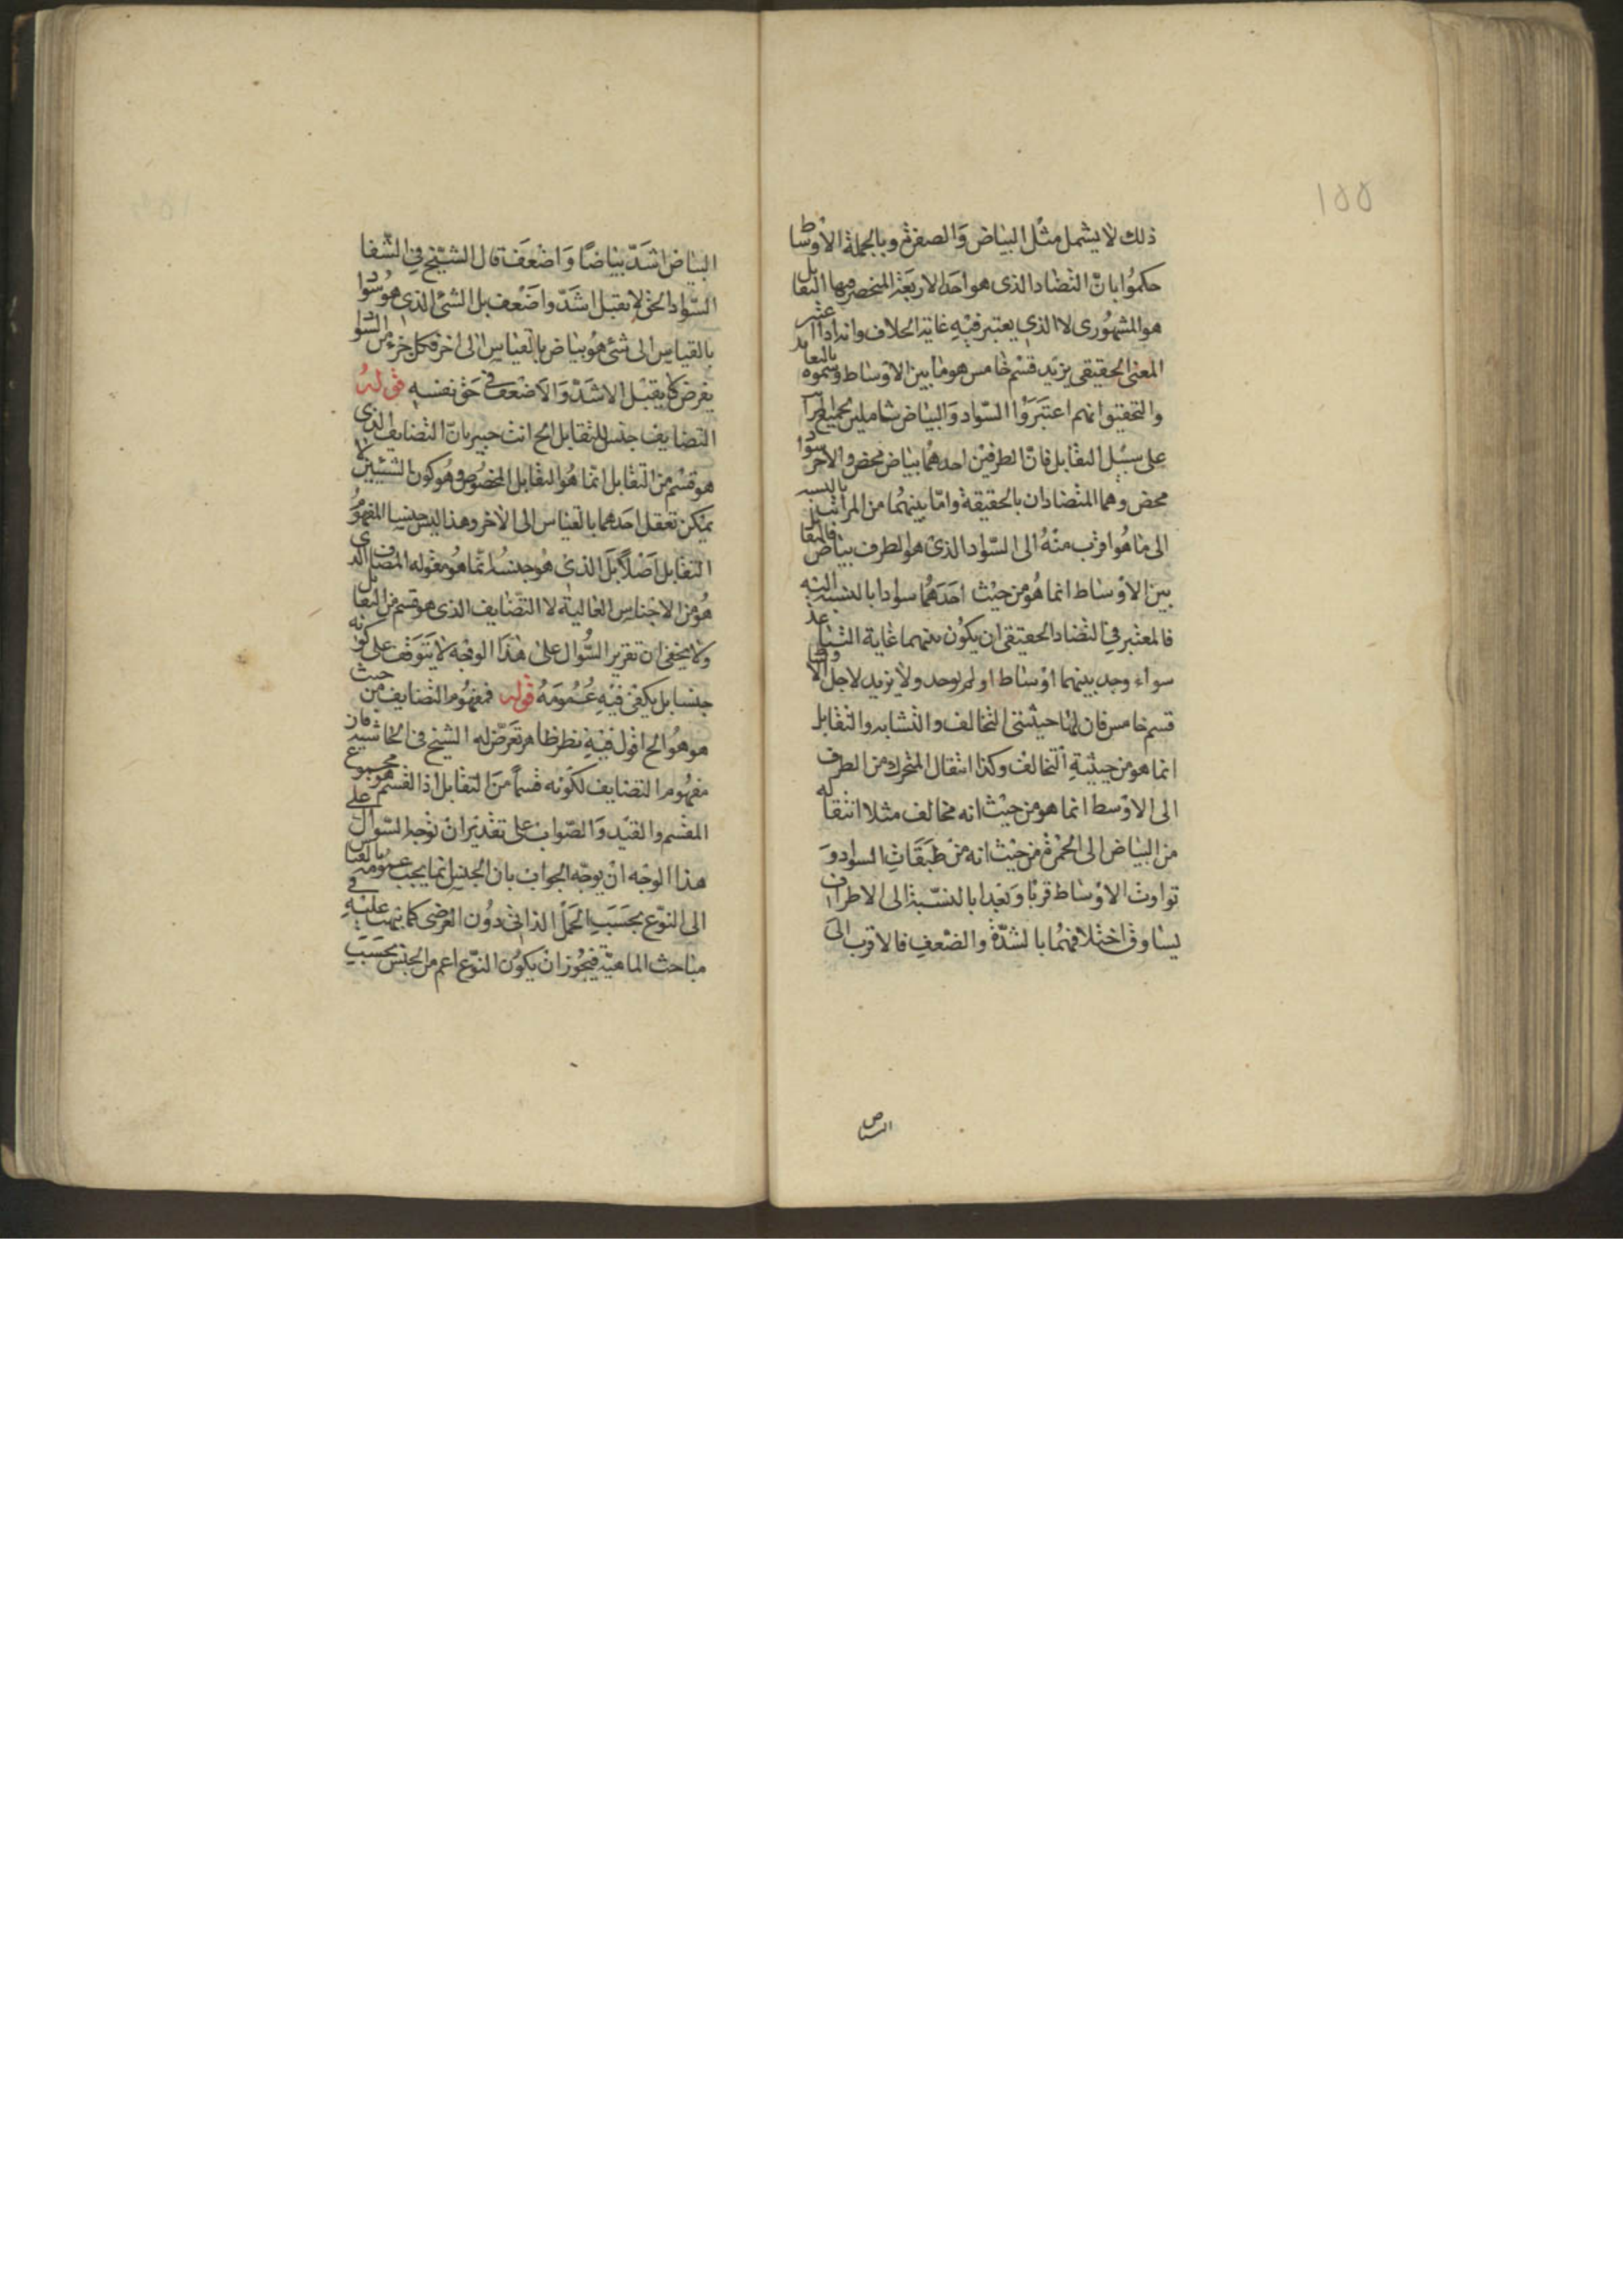 ١٥٥
ذلك لا يشمل مثل البياض والصفرة وبالجملة الاوساط
حكموا بان التضاد الذى هو احد الاربعة المنحصر فيها التقابل
هو المشهورى لا الذى يعتبر فيه غاية الخلاف وانه اذا اعتبر
المعنى الحقيقى يزيد قسم خامس هو ما بين الاوساط وسموه بالتعاند
والتحقيق انهم اعتبروا السواد والبياض شاملين لجميع
على سبيل التقابل فان الطرفين احدهما بياض محض والاخر سواد
محض وهما المتضادان بالحقيقة واما بينهما من المراتب بالنسبة
الى ما هو اقرب منه الى السواد الذى هو الطرف بياض فالتقابل
بين الاوساط انما هو من حيث احدهما سوادا بالنسبة اليه
فالمعتبر فى التضاد الحقيقى ان يكون بينهما غاية التباعد
سواء وجد بينهما اوساط او لم يوجد ولا يزيد لاجل الاوساط
قسم خامس فان لها حيثيتى التخالف والتشابه والتقابل
انما هو من حيثية التخالف وكذا انتقال المتحرك من الطرف
الى الاوسط انما هو من حيث انه مخالف مثلا انتقاله
من البياض الى الحمرة من حيث انه من طبقات السواد و
تواوت الاوساط قربا وبعدا بالنسبة الى الاطراف
يساوق اختلافهما بالشدة والضعف فالاقرب الى
البياض
البياض اشد بياضا واضعف قال الشيخ فى الشفا
السواد الحق لا يقبل اشد واضعف بل الشئ الذى هو سواد
بالقياس الى شئ هو بياض بالقياس الى اخر فكل جزء من السواد
يفرض لا يقبل الاشد والاضعف فى حق نفسه قوله
التضايف جنس للتقابل الخ انت خبير بان التضايف الذى
هو قسم من التقابل انما هو التقابل المخصوص وهو كون الشيئين لا
يمكن تعقل احدهما بالقياس الى الاخر وهذا ليس جنسا المفهوم
التقابل اصلا بل الذى هو جنس انما هو مقوله المضاف الذى
هو من الاجناس العالية لا التضايف الذى هو قسم من التقابل
ولا يخفى ان تقرير السؤال على هذا الوجه لا يتوقف على كونه
جنسا بل يكفى فيه عمومه قوله فمفهوم التضايف من حيث
هو هو الخ اقول فيه نظر ظاهر تعرض له الشيخ فى الحاشيه فان
مفهوم التضايف لكونه قسما من التقابل اذا القسم هو مجموع
المقسم والقيد والصواب على تقدير ان توجه السؤال على
هذا الوجه ان يوجه الجواب بان الجنس انما يجب عمومه بالقياس
الى النوع بحسب الحمل الذاتى دون العرضى كما نبهت عليه فى
مباحث الماهية فيجوز ان يكون النوع اعم من الجنس بحسب